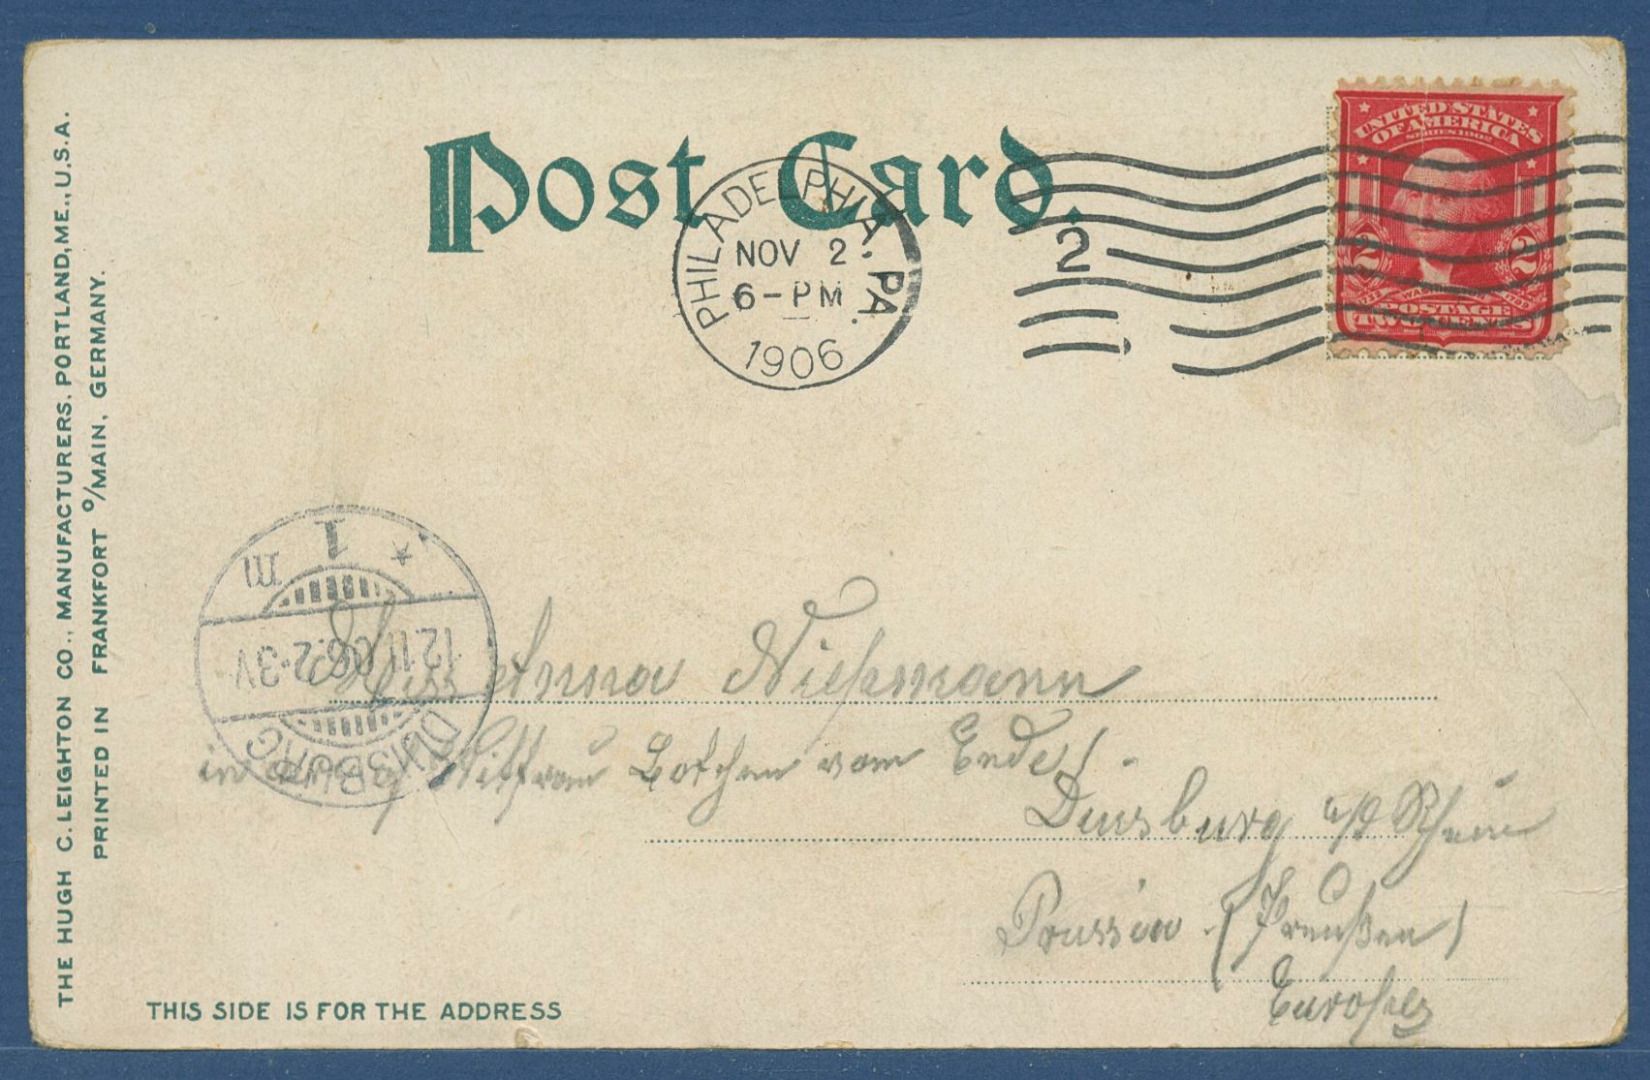 THE HUGH C. LEIGHTON CO., MANUFACTURERS, PORTLAND, ME., U.S.A.
PRINTED IN FRANKFORT o/MAIN, GERMANY.
Post Card.
PHILADELPHIA, PA.
NOV 2
6-PM
1906
2
UNITED STATES
OF AMERICA
SERIES 1902
2 2
WASHINGTON
POSTAGE
TWO CENTS
DUISBURG
12.11.06.2-3V
* 1 m
Miss Anna Niehmann
Lottchen vom Ende/.
Duisburg a/d Rhein
Prussia. (Preußen)
Europe
THIS SIDE IS FOR THE ADDRESS